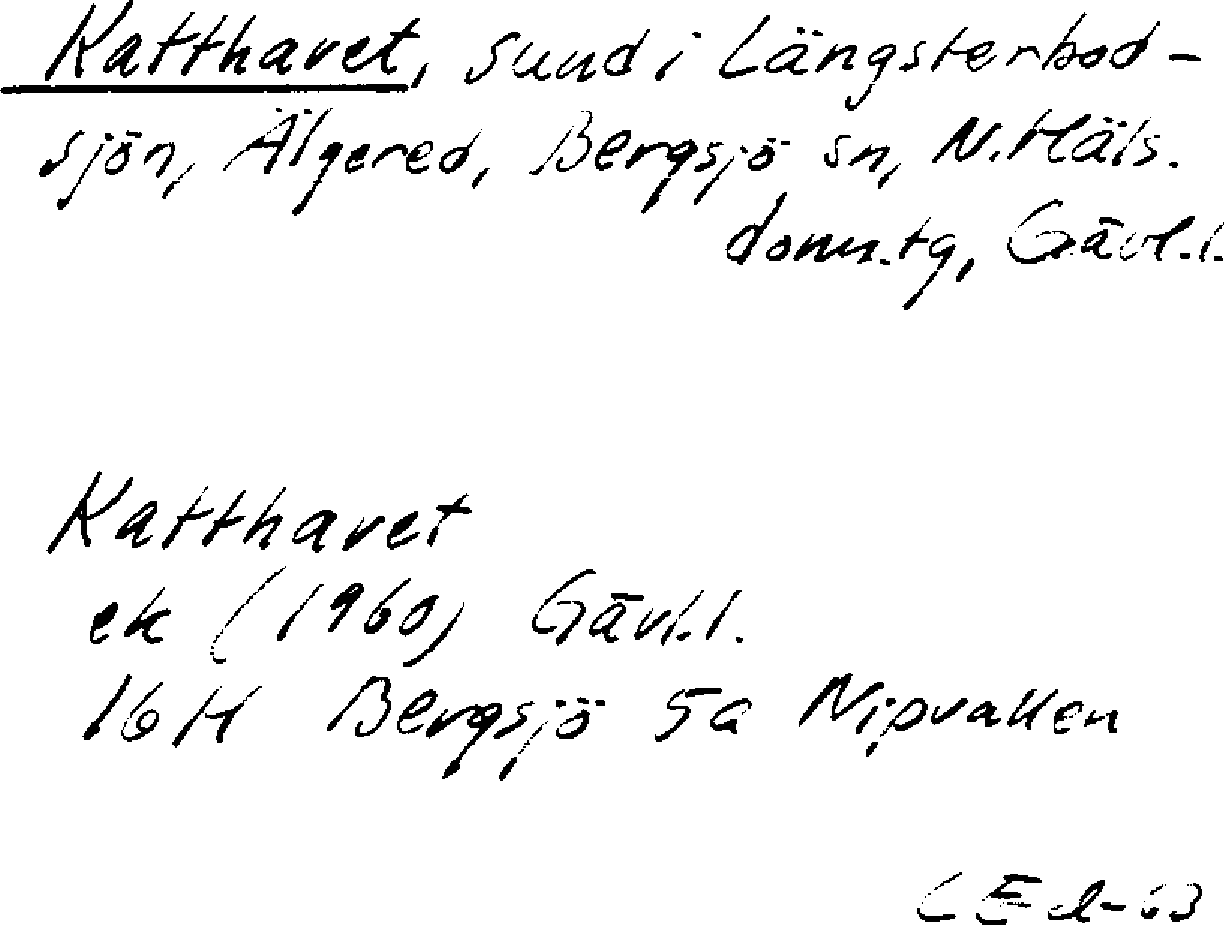 Katthavet, sund i Längsterbod-
sjön, Älgered, Bergsjö sn, N. Häls.
doms.tg, Gävl.l.
Katthavet
ek (1960) Gävl.l.
16H Bergsjö 5a Nipvallen